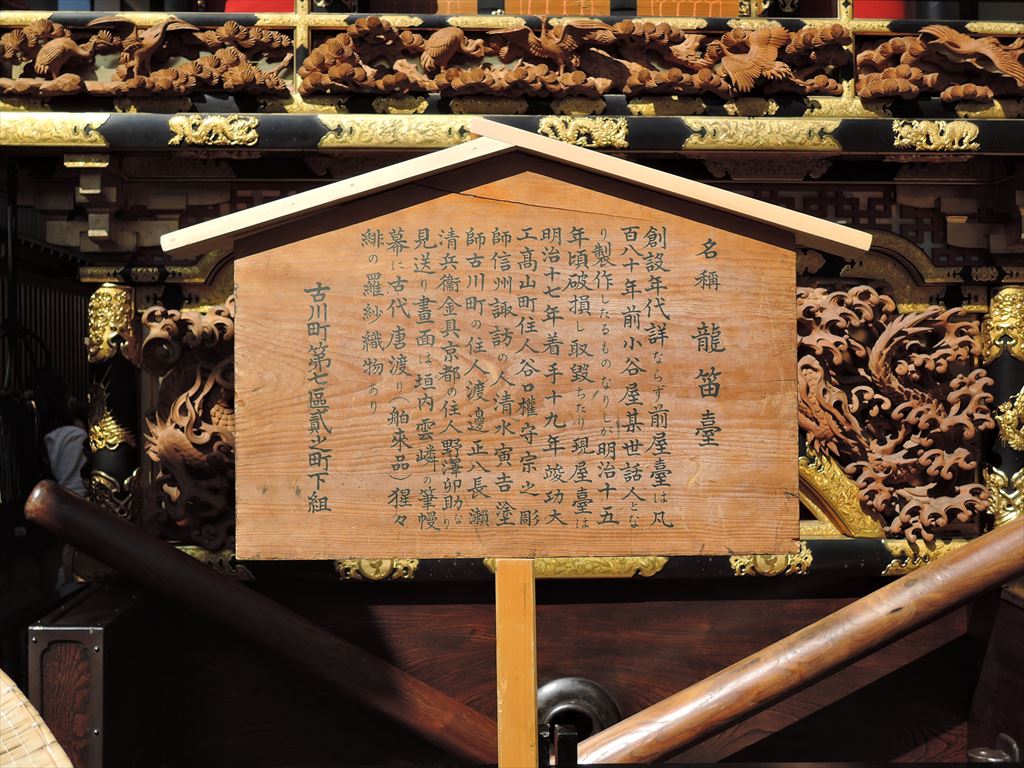 名稱 龍笛臺
創設年代詳ならず前屋臺は凡
百八十年前小谷屋某世話人とな
り製作したるものなりしが明治十五
年頃破損し取毀ちたり現屋臺は
明治十七年着手十九年竣功大
工髙山町住人谷口權守宗之彫
師信州諏訪の人清水寅吉塗
師古川町の住人渡邊正八長瀨
清兵衞金具京都の住人野澤卯助なり
見送り畫面は垣内雲嶙の筆幔
幕に古代唐渡り(舶來品)猩々
緋の羅紗織物あり
古川町第七區貳之町下組